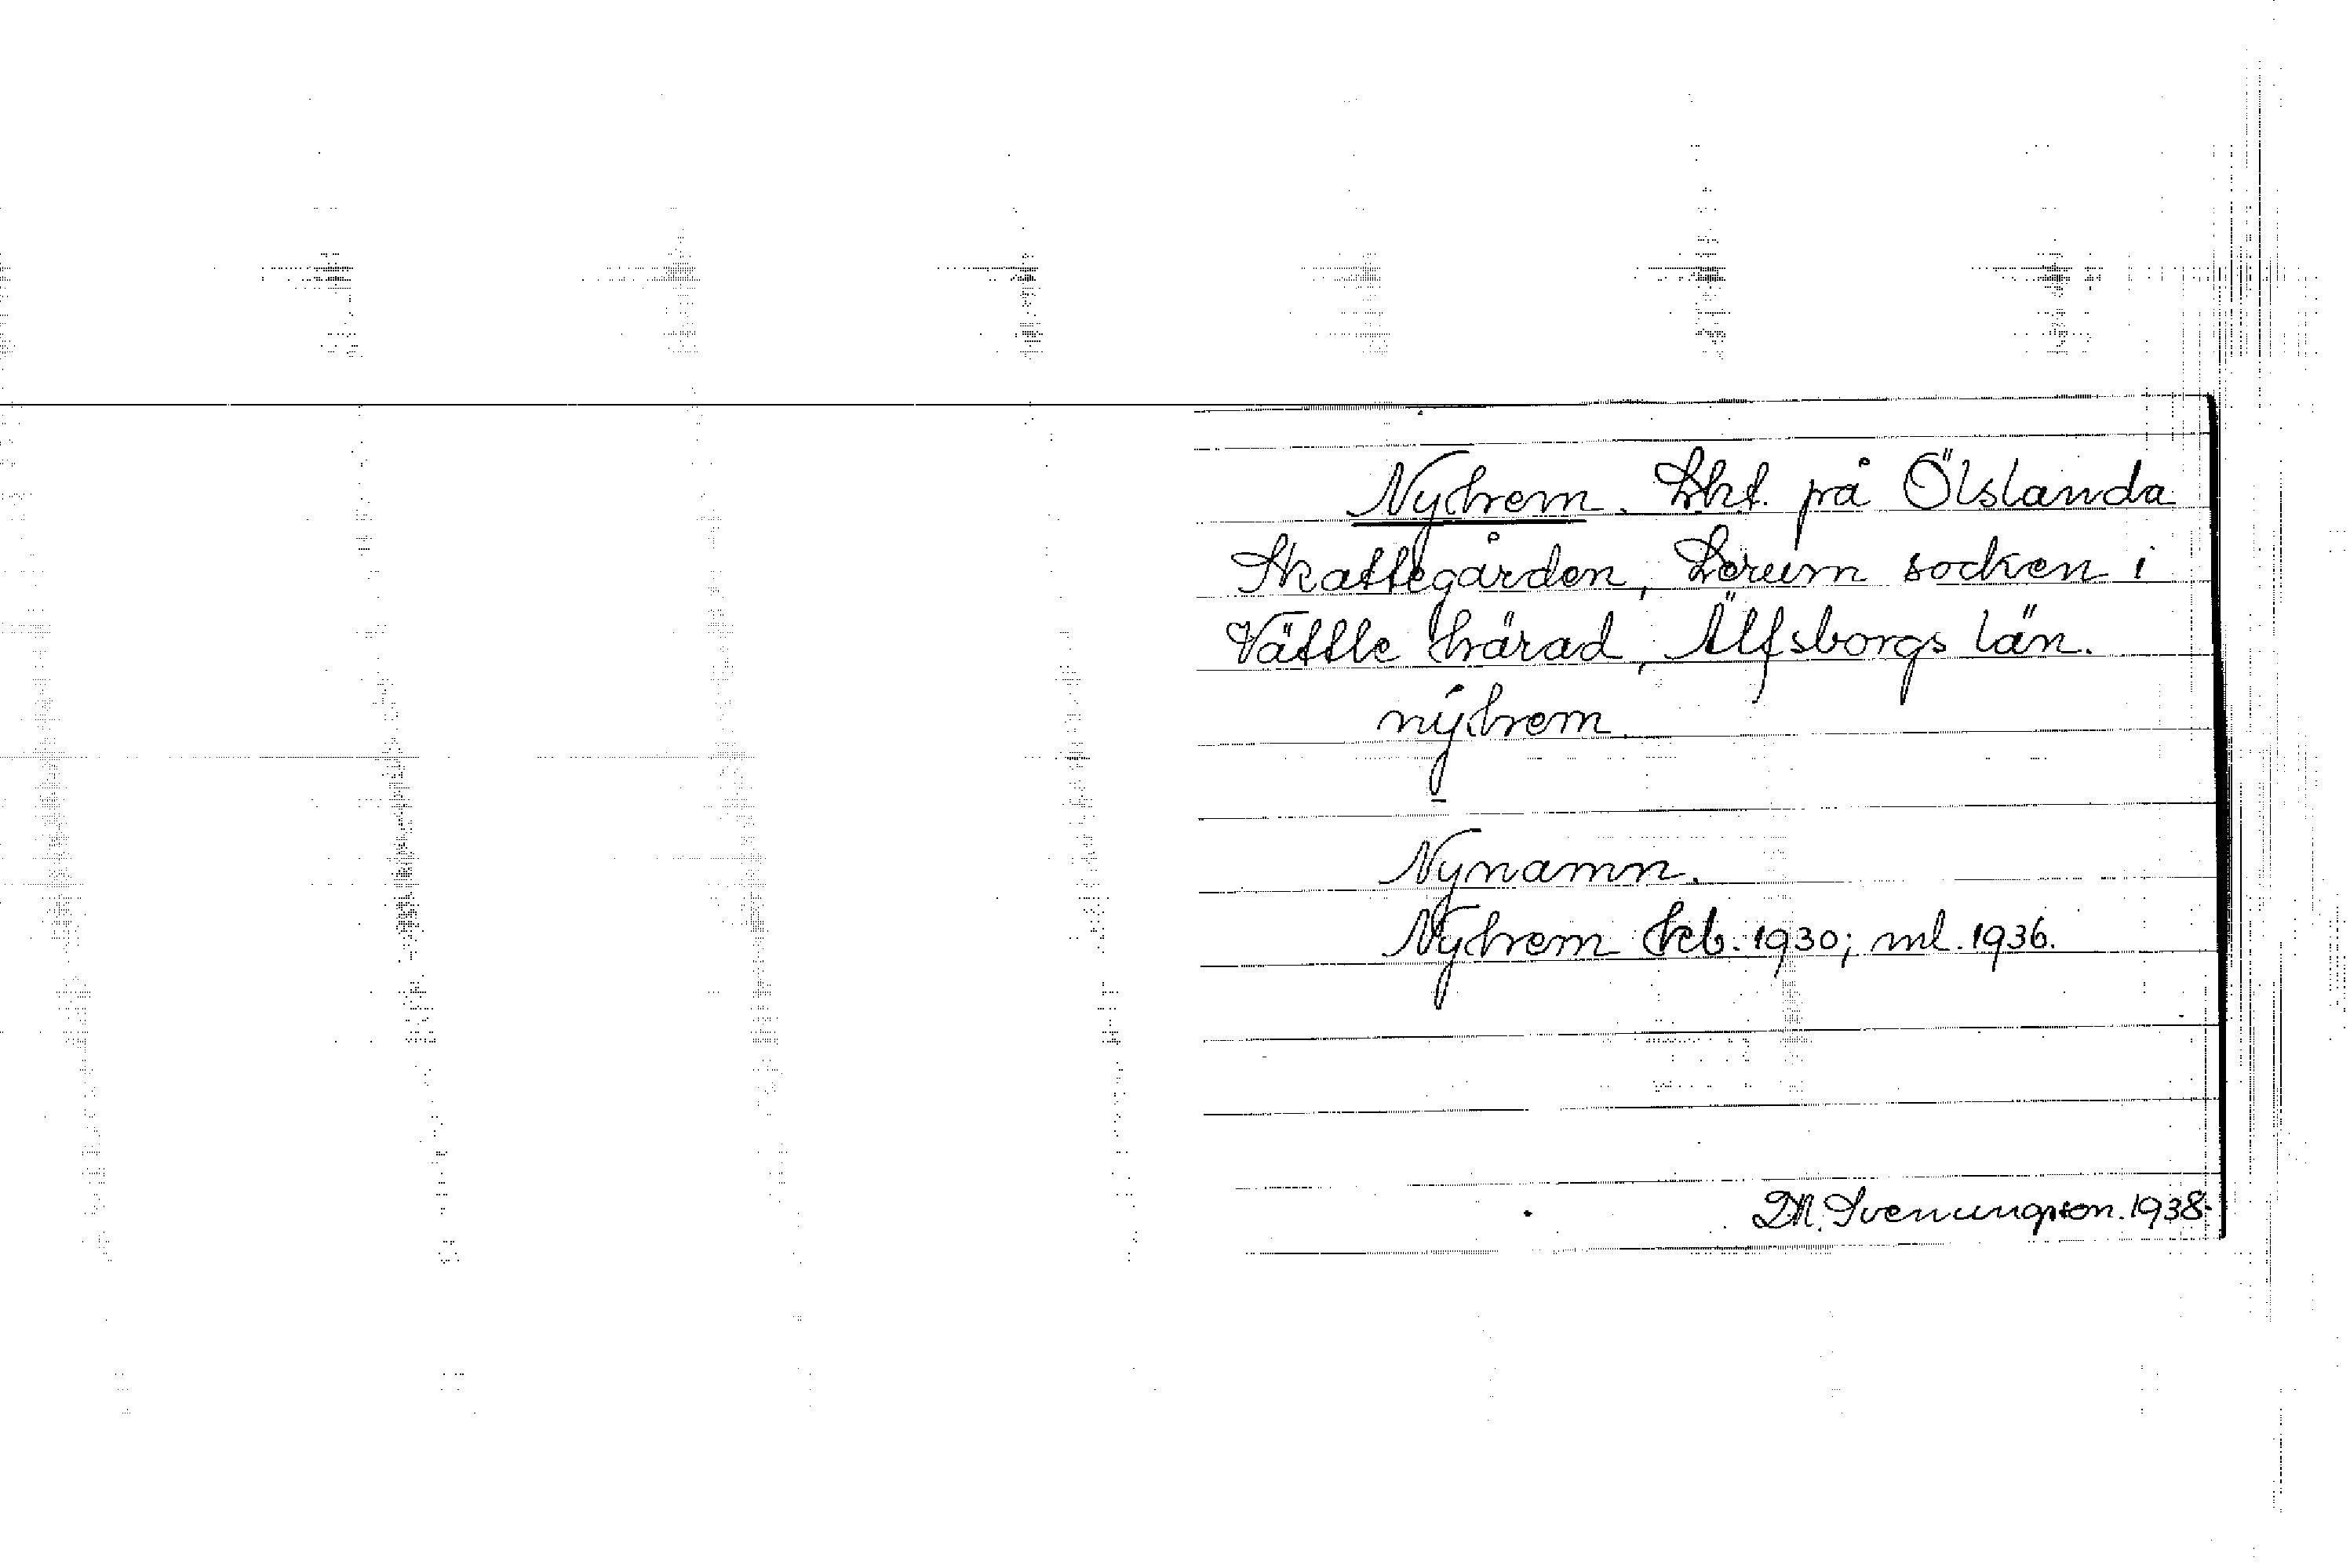 Nyhem. Lht. på Ölslanda
Skattegården, Lerum socken i
Vättle härad, Älfsborgs län.
nýhem.
Nynamn.
Nyhem kb. 1930; ml. 1936.
D.A. Svenungsson. 1938.